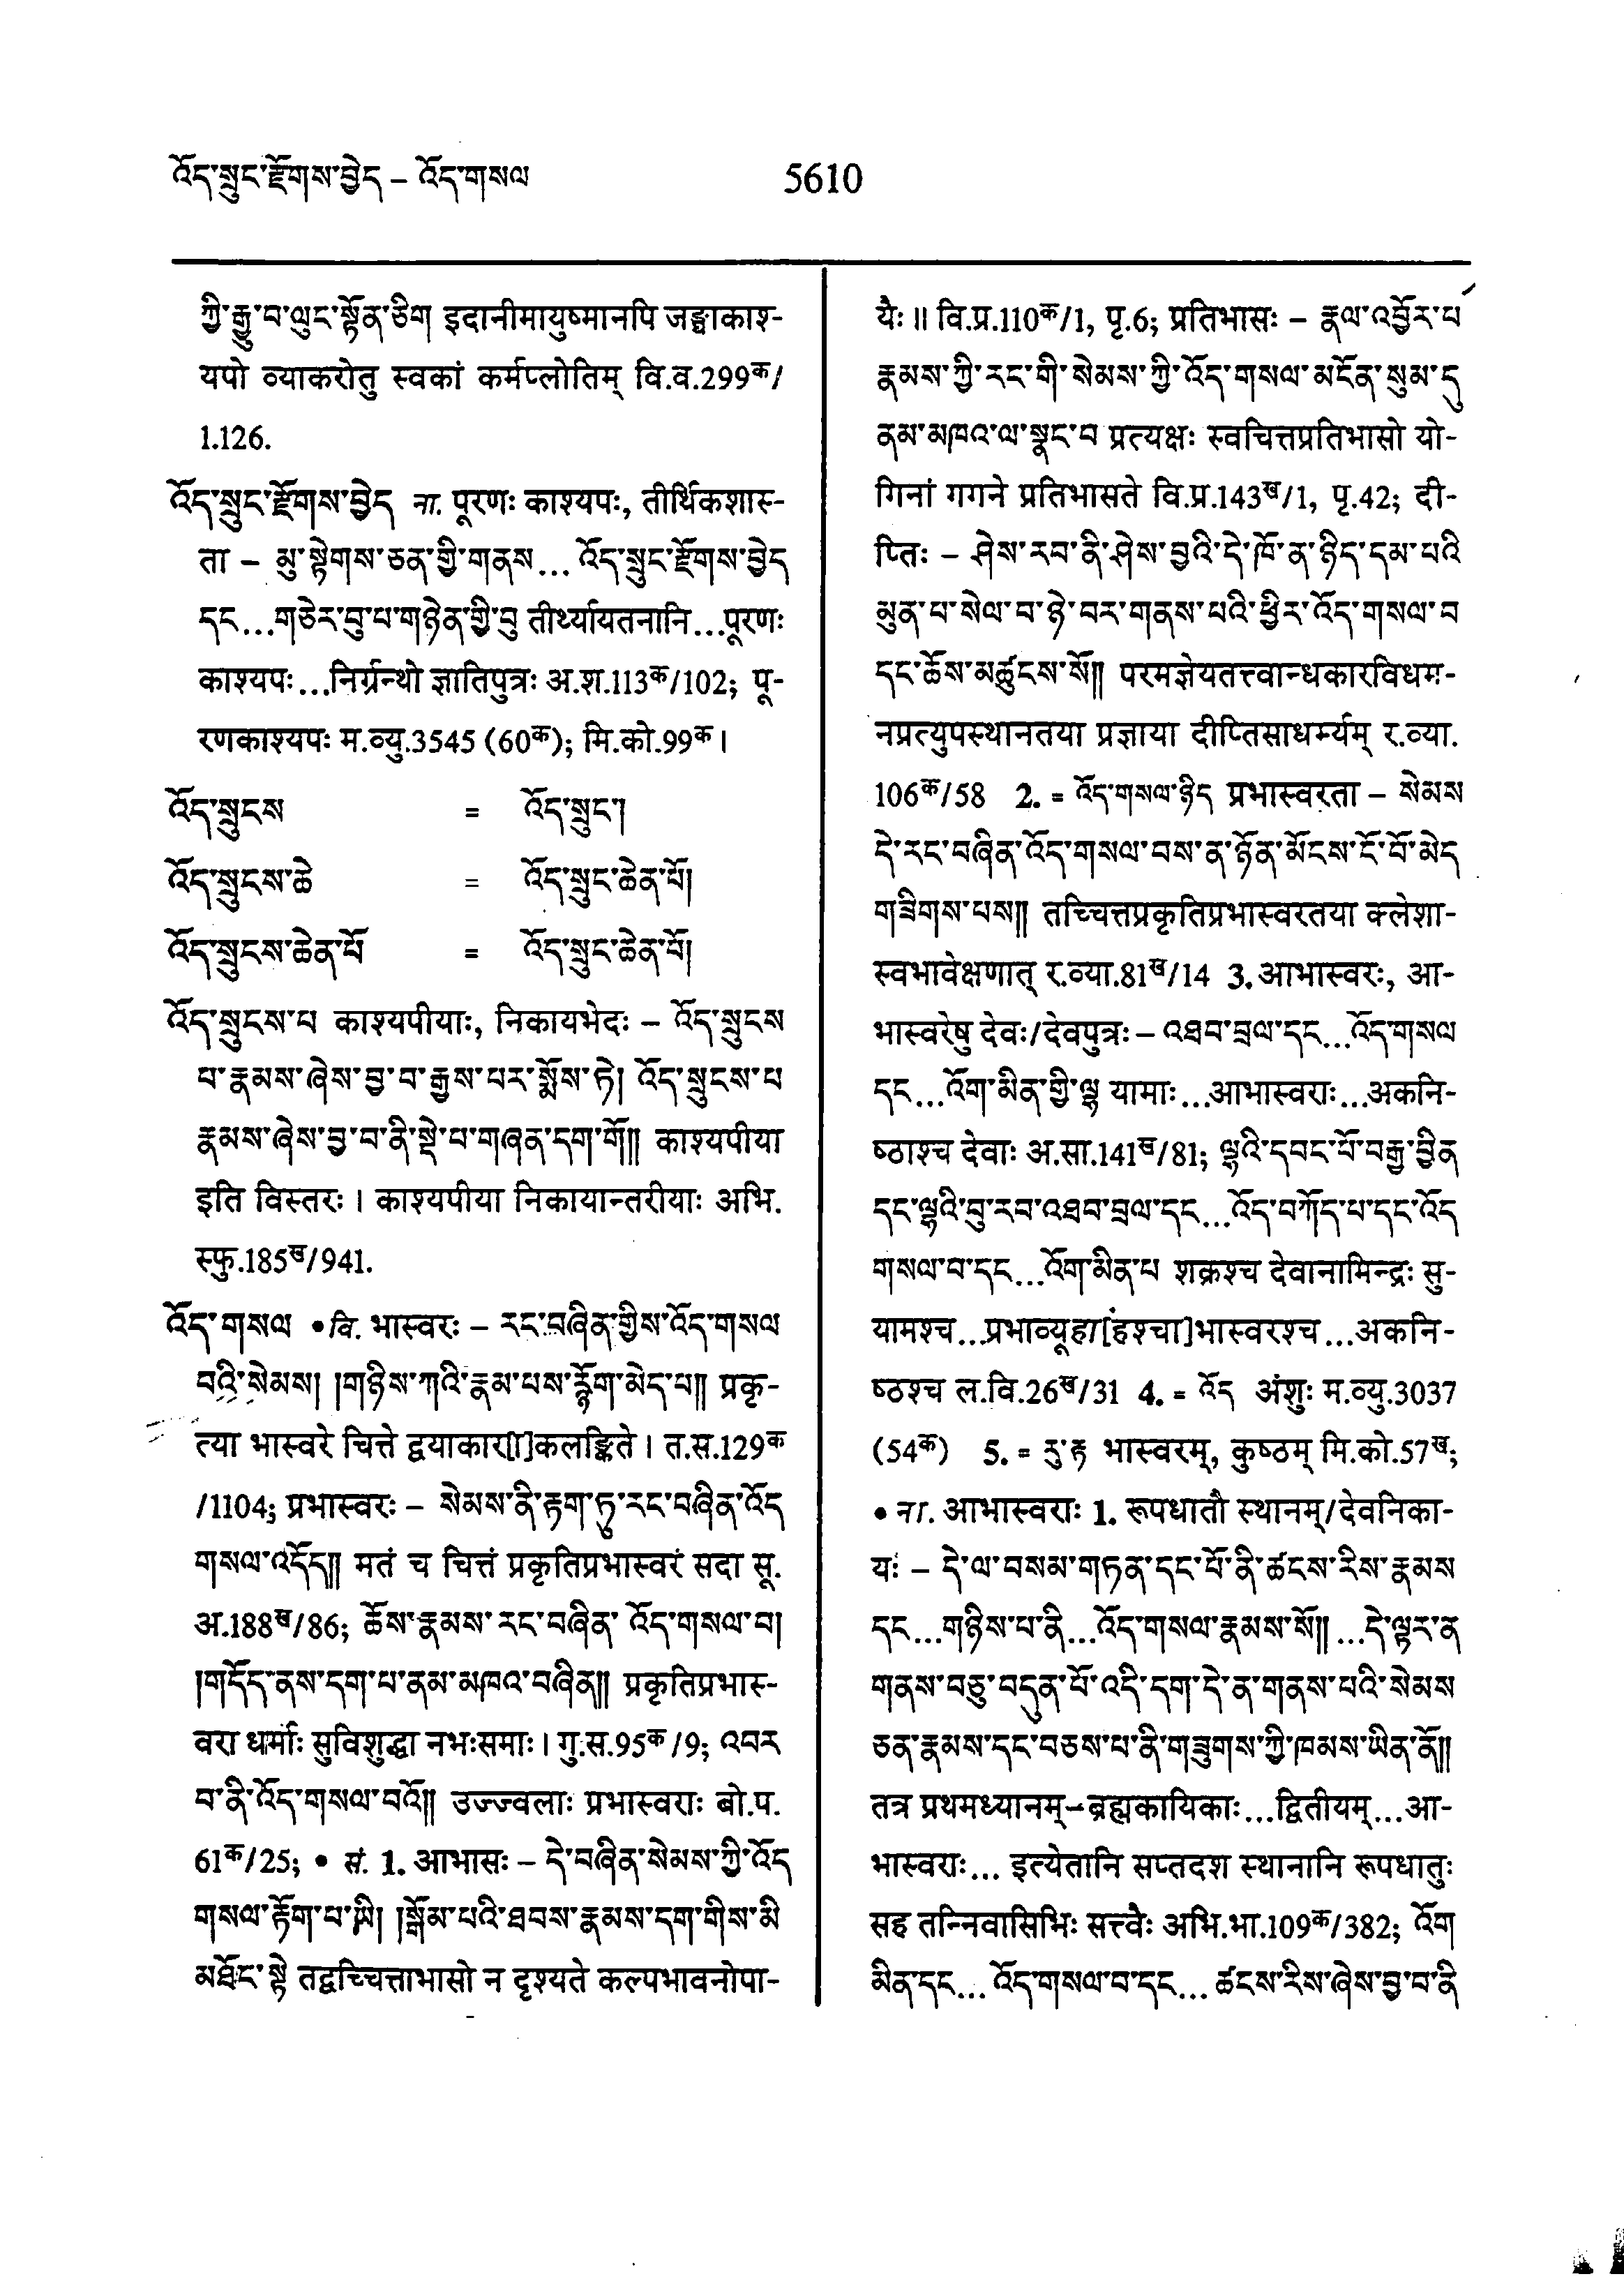 འོད་སྲུང་རྫོགས་བྱེད – འོད་གསལ
5610
ཀྱི་རྒྱུ་བ་ལུང་སྟོན་ཅིག इदानीमायुष्मानपि जङ्घाकाश्-
यपो व्याकरोतु स्वकां कर्मप्लोतिम् वि.व.299क/
1.126.
འོད་སྲུང་རྫོགས་བྱེད ना. पूरणः काश्यपः, तीर्थिकशास्-
ता – མུ་སྟེགས་ཅན་གྱི་གནས... འོད་སྲུང་རྫོགས་བྱེད
དང...གཅེར་བུ་པ་གཉེན་གྱི་བུ तीर्थ्यायतनानि...पूरणः
काश्यपः...निर्ग्रन्थो ज्ञातिपुत्रः अ.श.113क/102; पू-
रणकाश्यपः म.व्यु.3545 (60क); मि.को.99क।
འོད་སྲུངས = འོད་སྲུང་།
འོད་སྲུངས་ཆེ = འོད་སྲུང་ཆེན་པོ།
འོད་སྲུངས་ཆེན་པོ = འོད་སྲུང་ཆེན་པོ།
འོད་སྲུངས་པ काश्यपीयाः, निकायभेदः – འོད་སྲུངས
པ་རྣམས་ཞེས་བྱ་བ་རྒྱས་པར་སྨོས་ཏེ། འོད་སྲུངས་པ
རྣམས་ཞེས་བྱ་བ་ནི་སྡེ་པ་གཞན་དག་གོ།། काश्यपीया
इति विस्तरः। काश्यपीया निकायान्तरीयाः अभि.
स्फु.185ख/941.
འོད་གསལ • वि. भास्वरः – རང་བཞིན་གྱིས་འོད་གསལ
བའི་སེམས། །གཉིས་ཀའི་རྣམ་པས་རྙོག་མེད་པ།། प्रकृ-
त्या भास्वरे चित्ते द्वयाकार[ा]कलङ्किते। त.स.129क
/1104; प्रभास्वरः – སེམས་ནི་རྟག་ཏུ་རང་བཞིན་འོད
གསལ་འདོད།། मतं च चित्तं प्रकृतिप्रभास्वरं सदा सू.
अ.188ख/86; ཆོས་རྣམས་རང་བཞིན་ འོད་གསལ་བ།
།གདོད་ནས་དག་པ་ནམ་མཁའ་བཞིན།། प्रकृतिप्रभास्-
वरा धर्माः सुविशुद्धा नभःसमाः। गु.स.95क/9; འབར
བ་ནི་འོད་གསལ་བའོ།། उज्ज्वलाः प्रभास्वराः बो.प.
61क/25; • सं. 1. आभासः – དེ་བཞིན་སེམས་ཀྱི་འོད
གསལ་རྟོག་པ་ཡི། །སྒོམ་པའི་ཐབས་རྣམས་དག་གིས་མི
མཐོང་སྟེ तद्वच्चित्ताभासो न दृश्यते कल्पभावनोपा-
यैः॥ वि.प्र.110क/1, पृ.6; प्रतिभासः – རྣལ་འབྱོར་པ
རྣམས་ཀྱི་རང་གི་སེམས་ཀྱི་འོད་གསལ་མངོན་སུམ་དུ
ནམ་མཁའ་ལ་སྣང་བ प्रत्यक्षः स्वचित्तप्रतिभासो यो-
गिनां गगने प्रतिभासते वि.प्र.143ख/1, पृ.42; दी-
प्तिः – ཤེས་རབ་ནི་ཤེས་བྱའི་དེ་ཁོ་ན་ཉིད་དམ་པའི
མུན་པ་སེལ་བ་ཉེ་བར་གནས་པའི་ཕྱིར་འོད་གསལ་བ
དང་ཆོས་མཚུངས་སོ།། परमज्ञेयतत्त्वान्धकारविधम-
नप्रत्युपस्थानतया प्रज्ञाया दीप्तिसाधर्म्यम् र.व्या.
106क/58 2. = འོད་གསལ་ཉིད प्रभास्वरता – སེམས
དེ་རང་བཞིན་འོད་གསལ་བས་ན་ཉོན་མོངས་ངོ་བོ་མེད
གཟིགས་པས།། तच्चित्तप्रकृतिप्रभास्वरतया क्लेशा-
स्वभावेक्षणात् र.व्या.81ख/14 3. आभास्वरः, आ-
भास्वरेषु देवः/देवपुत्रः – འཐབ་བྲལ་དང...འོད་གསལ
དང...འོག་མིན་གྱི་ལྷ यामाः...आभास्वराः...अकनि-
ष्ठाश्च देवाः अ.सा.141ख/81; ལྷའི་དབང་པོ་བརྒྱ་བྱིན
དང་ལྷའི་བུ་རབ་འཐབ་བྲལ་དང...འོད་བཀོད་པ་དང་འོད
གསལ་བ་དང...འོག་མིན་པ शक्रश्च देवानामिन्द्रः सु-
यामश्च...प्रभाव्यूहा[हंश्चा]भास्वरश्च...अकनि-
ष्ठश्च ल.वि.26ख/31 4. = འོད अंशुः म.व्यु.3037
(54क) 5. = རུ་རྟ भास्वरम्, कुष्ठम् मि.को.57ख;
• ना. आभास्वराः 1. रूपधातौ स्थानम्/देवनिका-
यः – དེ་ལ་བསམ་གཏན་དང་པོ་ནི་ཚངས་རིས་རྣམས
དང...གཉིས་པ་ནི...འོད་གསལ་རྣམས་སོ།། ...དེ་ལྟར་ན
གནས་བཅུ་བདུན་པོ་འདི་དག་དེ་ན་གནས་པའི་སེམས
ཅན་རྣམས་དང་བཅས་པ་ནི་གཟུགས་ཀྱི་ཁམས་ཡིན་ནོ།།
तत्र प्रथमध्यानम्–ब्रह्मकायिकाः...द्वितीयम्...आ-
भास्वराः... इत्येतानि सप्तदश स्थानानि रूपधातुः
सह तन्निवासिभिः सत्त्वैः अभि.भा.109क/382; འོག
མིན་དང... འོད་གསལ་བ་དང... ཚངས་རིས་ཞེས་བྱ་བ་ནི